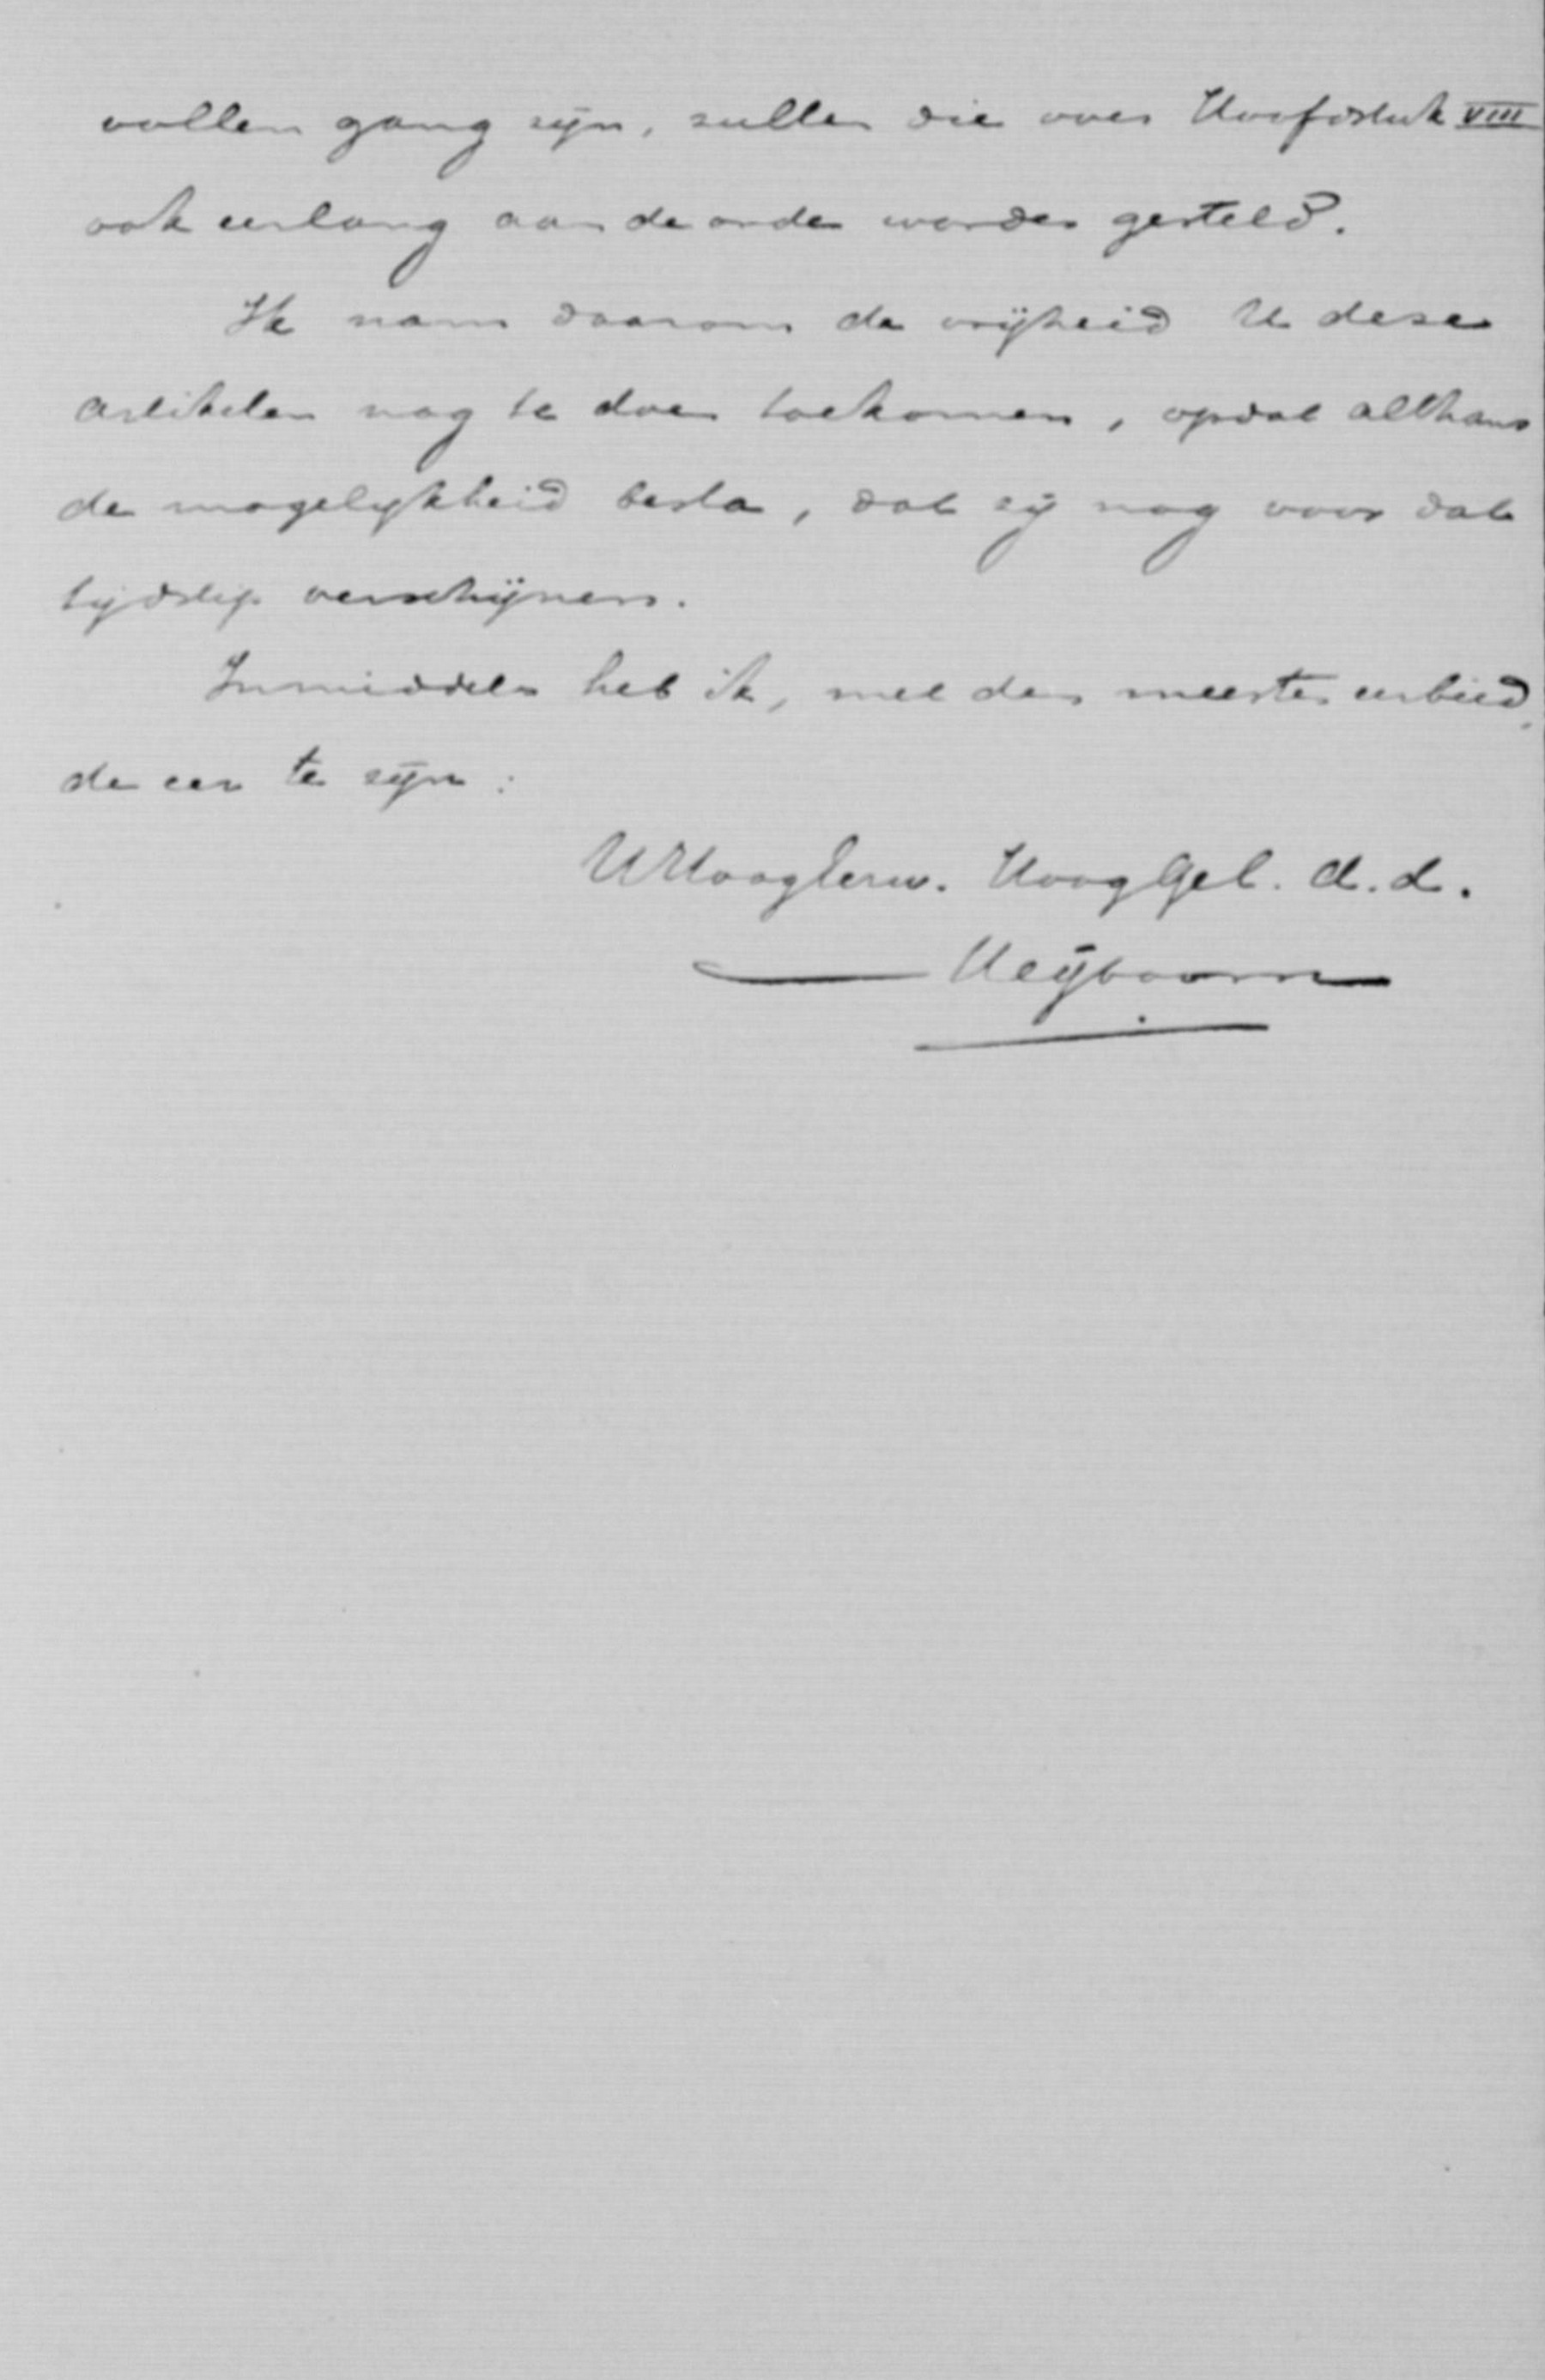 vollen gang zijn, zullen die over Hoofdstuk VIII
ook eerlang aan de orde worden gesteld.
Ik nam daarom de vrijheid U deze
artikelen nog te doen toekomen, opdat althans
de mogelijkheid besta, dat zij nog voor dat
tijdstip verschijnen.
Inmiddels heb ik, met den meesten eerbied,
de eer te zijn:
UHoogEerw. HoogGel. d. d.
Heijboom